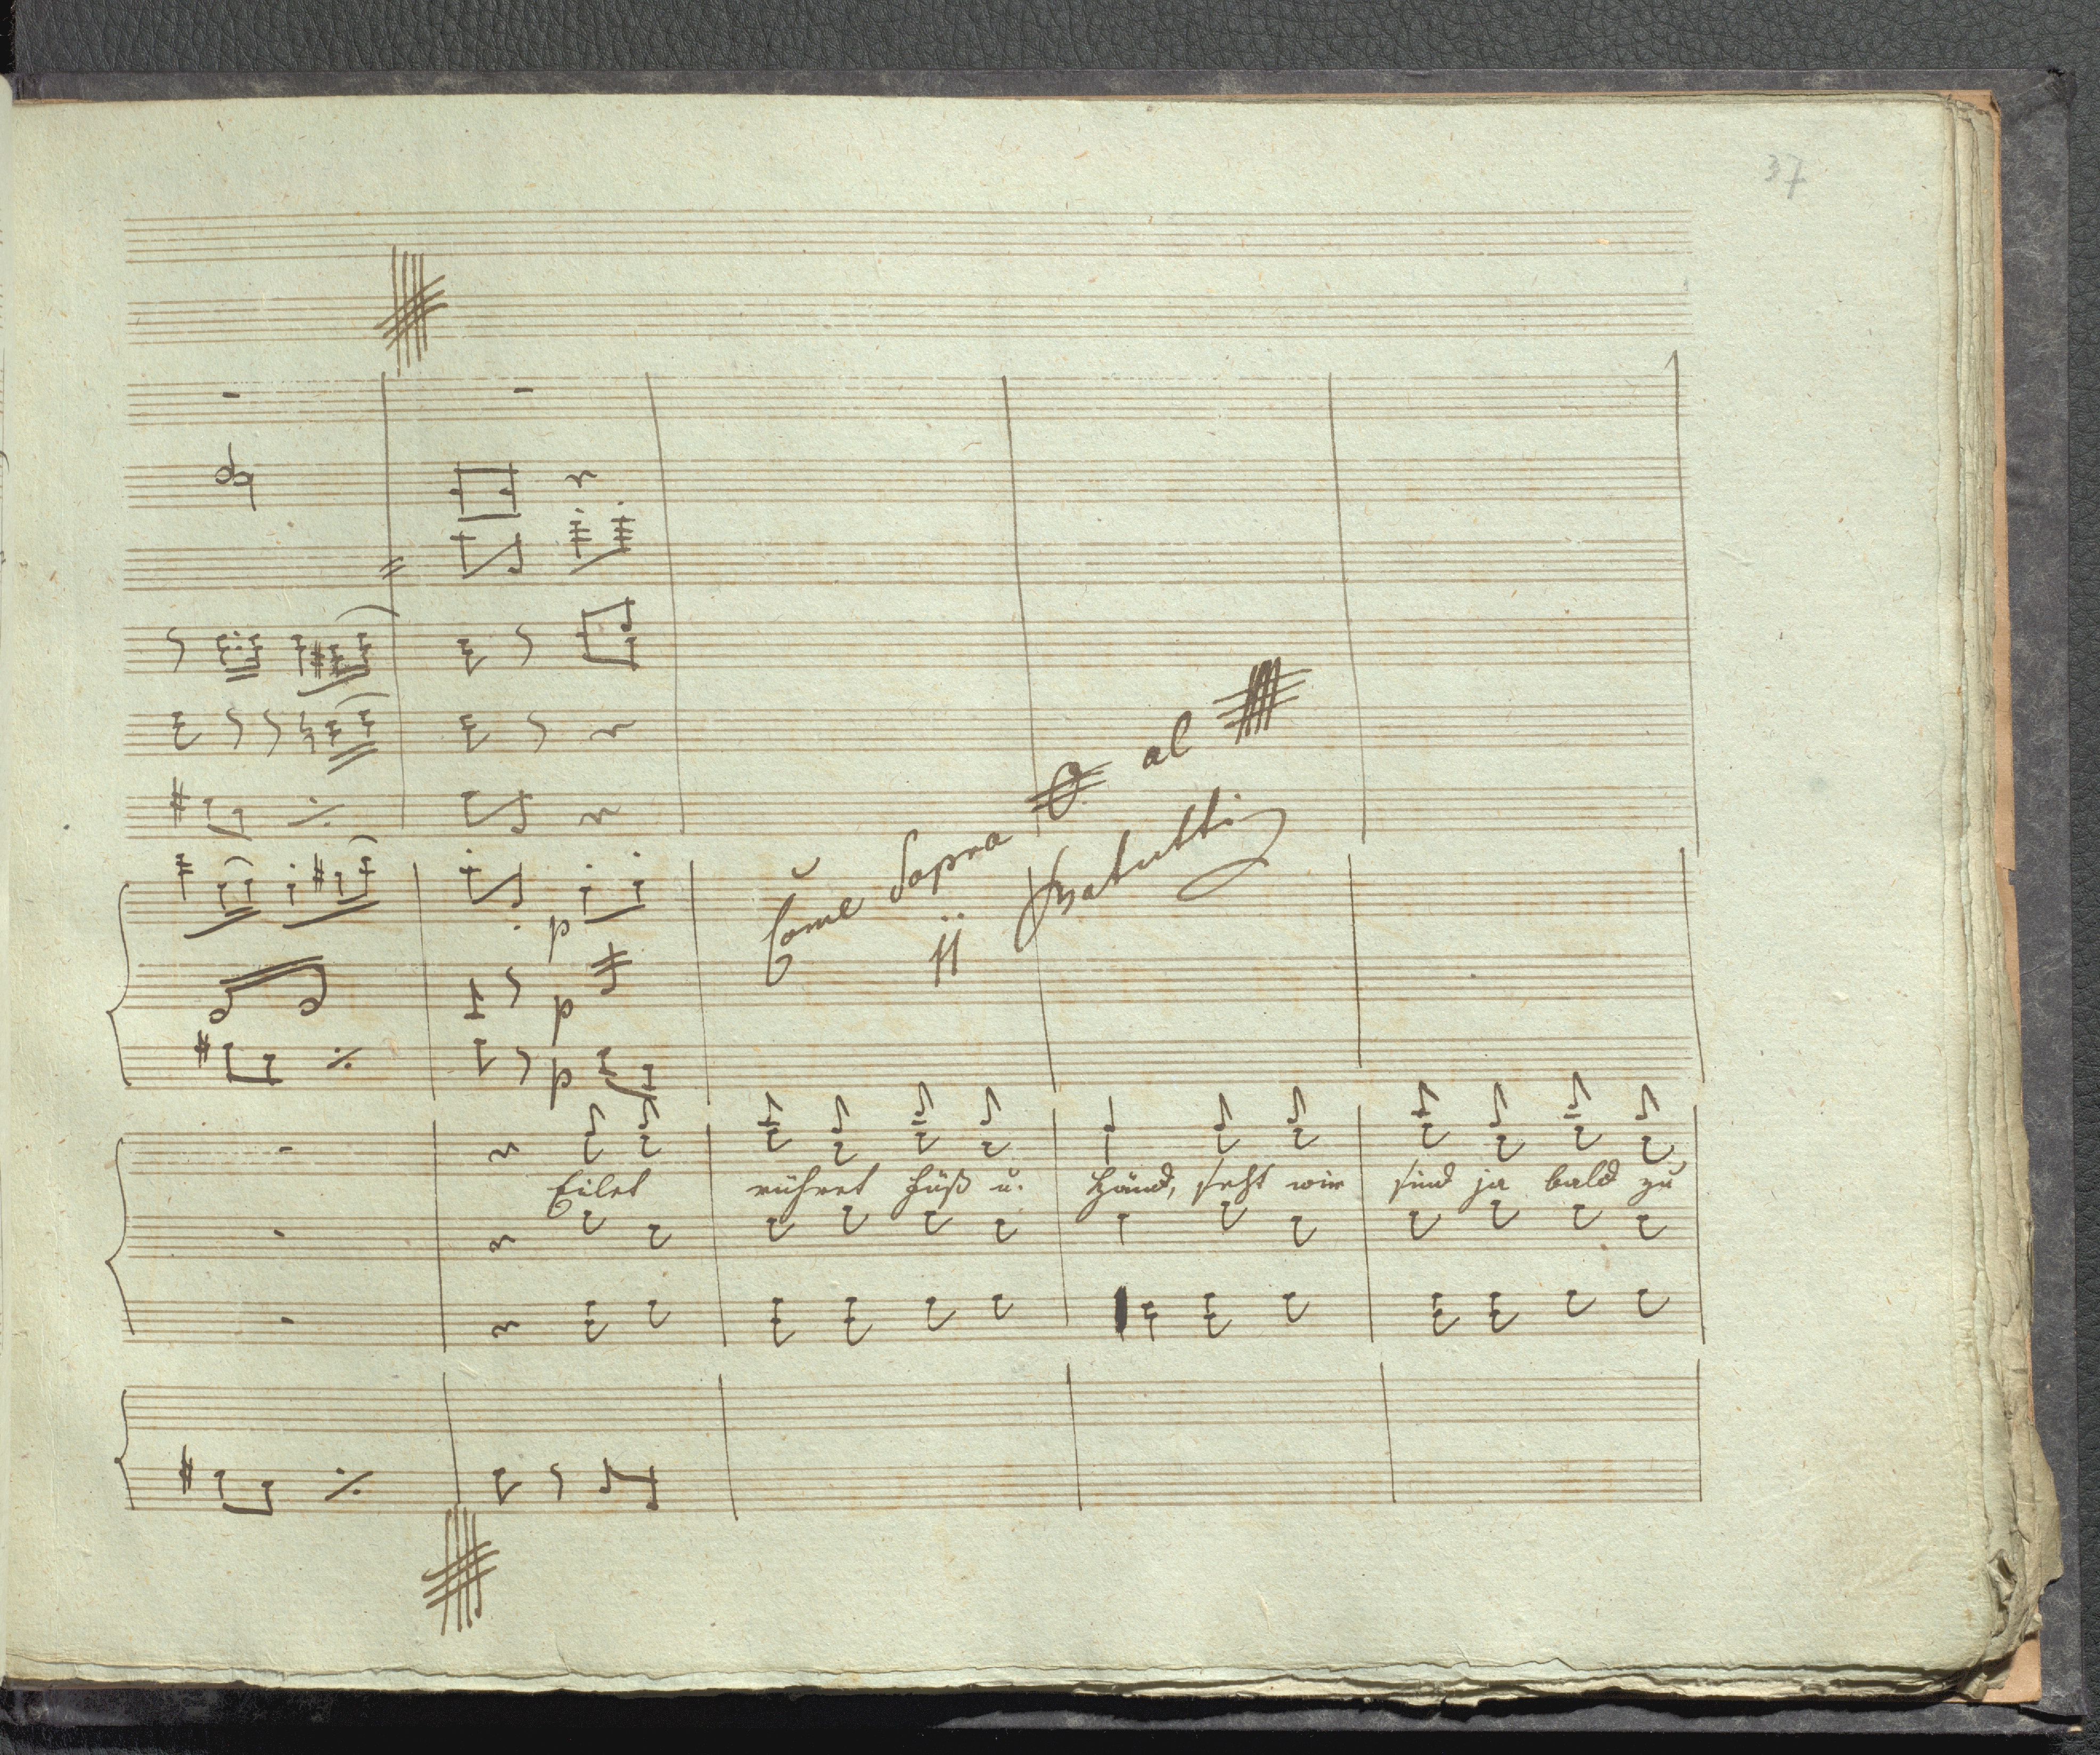 37
Come Sopra al
11 batutti
p
p
p
Eilet rühret Füß u. Händ, seht wir sind ja bald zu